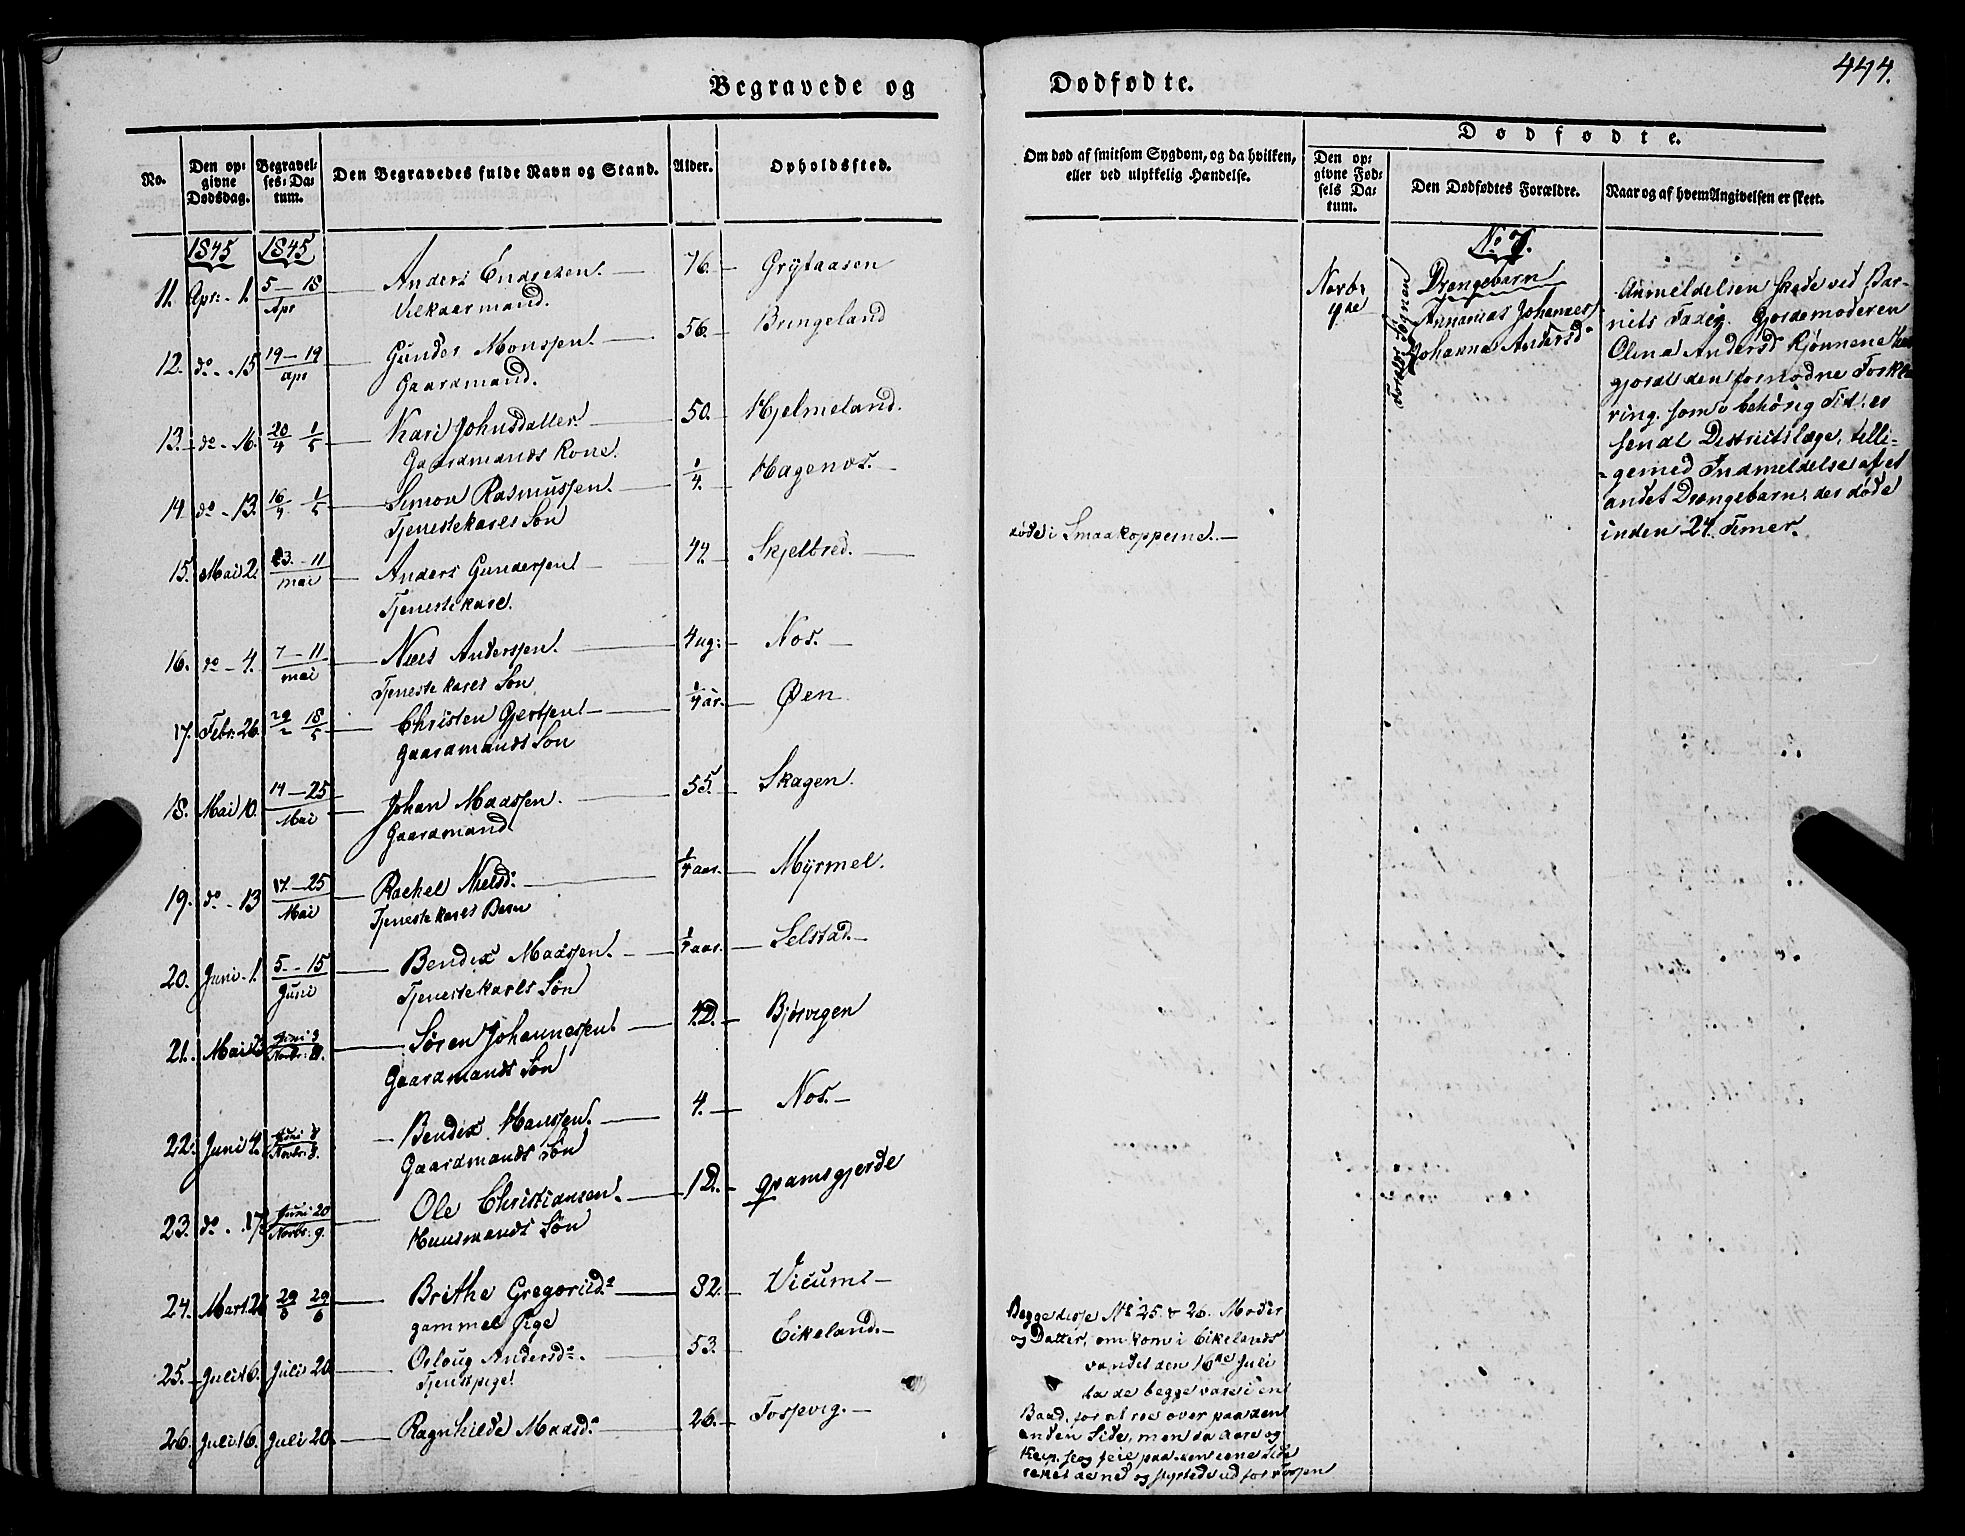 Begravede og Dødfødte.
444.
No.
Den opgivne Dødsdag.
Begravelses-Datum.
Den Begravedes fulde Navn og Stand.
Alder.
Opholdssted.
Om død af smitsom Sygdom, og da hvilken, eller ved ulykkelig Hændelse.
Dødfødte.
Den opgivne Fødsels Datum.
Den Dødfødtes Forældre.
Naar og af hvem Angivelsen er skeet.
1845 1845
11. Apr: 1. 5 – 18 Apr Anders Endresen. 76. Grÿtaasen
Vilkaarmand.
12. do 15 19 – 19 apr Gunder Monssen. 56. Bringeland
Gaardmand.
13. do 16. 20/4 1/5 Kari Johnsdatter. 50. Hjelmeland.
Gaardmands Kone.
14 do 13. 16/4 1/5 Simon Rasmussen. 1/4. Hagenes.
Tjenestekarls Søn
15. Mai 2. 3. – 11 mai Anders Gundersen 44. Skjelbred.
Tjenestekarl.
16. do 4. 7 – 11 mai Niels Anderssen. 4 ug: Nos.
Tjenestekarls Søn
17. Febr: 26. 18/5 Christen Gjertsen 1/4 ar. Øen
Gaardmands Søn
18. Mai 10. 14 – 25 Mai Johan Maassen. 55. Skagen.
Gaardmand
19. do 13 17 – 25 Mai Rachel Nielsd: 1/4 aar. Mÿrmel.
Tjenestekarls Barn
20. Juni 1. 5. – 15 Juni Bendix Maassen. 1/4 aar. Selstad.
Tjenestekarls Søn
21. Mai Juni 3 Novbr: Søren Johannessen. Bjørvigen
Gaardmands Søn
22. Juni 4. Juni 8 Novbr: 9. Bendix Hanssen. 4. Nos.
Gaardmands Søn
23. do 17 Juni 20 Novbr: 9. Ole Christiansen. 12. Gramsgjerde
Huusmands Søn
24. Mart. 21 29/6 Brithe Gregoriid: 82. Vieum
gammel Pige
25. Juli 16. Juli 20. Osloug Andersd: 53. Eikeland.
Tjenstpige
26. Juli 16. Juli 20. Ragnhilde Maasd: 26. Fossevig.
døde i Smaakopperne.
Begge disse No 25. & 26. Moder
og Datter, omkom i Eikelands
vandet den 16de Juli
da de begge vare i en
Baad, for at roe over paa den
anden Side, men da Aare og
paa den ene Side
ned og styrtede ud for
No 7.
Novbr 4de
Drengebarn
Ananias Johannes
Johanna Andersd:
Anmeldelsen skede ved Barnets Fader. Gjordemoderen
Olina Andersd Kjønnene
gjordt den fornødne Forklaring, som i behørig Tid er
sendt Districtslæge, tilligemed Indmeldelse af et
andet Drengebarn, der døde
inden 24 Timer.